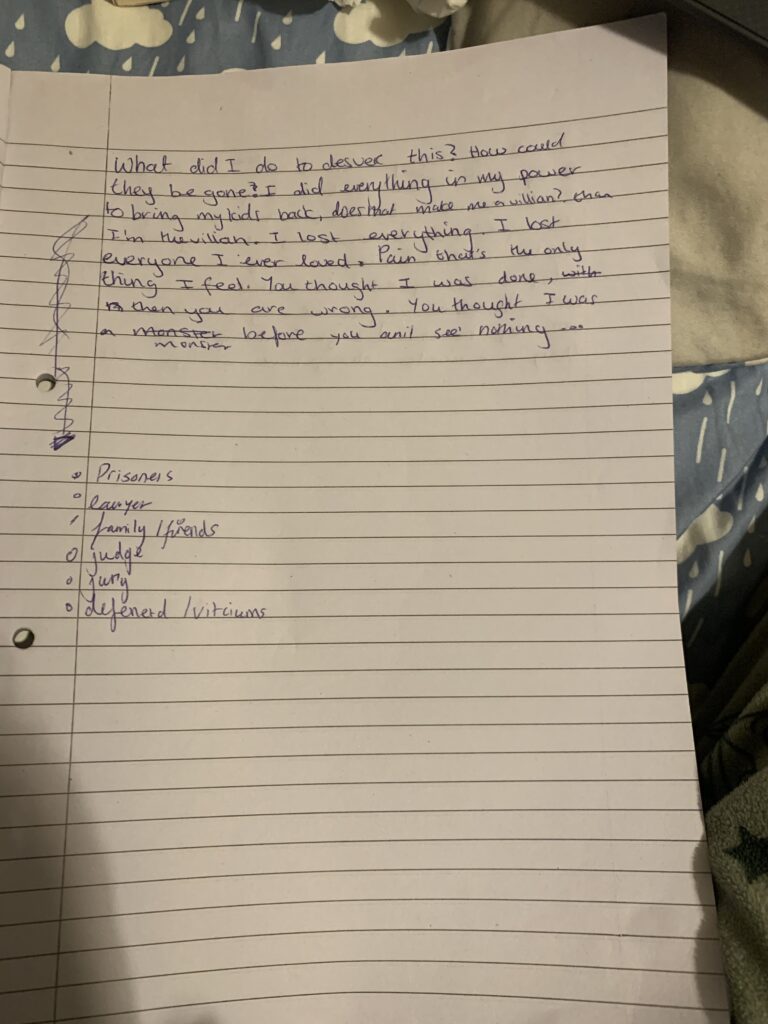 What did I do to desver this? How could
they be gone? I did everything in my power
to bring my kids back, does that make me a villian? than
I'm the vilian. I lost everything. I lost
everyone I ever loved. Pain that's the only
thing I feel. You thought I was done, with
then you are wrong. You thought I was
a monster before you anit see nothing ...
monster
Prisoners
lawyer
family / friends
judge
jury
defenerd / vitciums